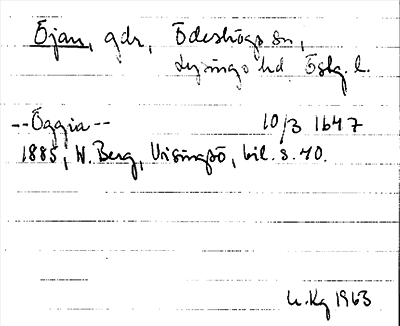 Öjan, gdr, Ödeshögs sn,
Lysings hd Östg. l.
--Öggia-- 10/3 1647
1885, W. Berg, Visingsö, bil. s. 40.
U.Kg 1963